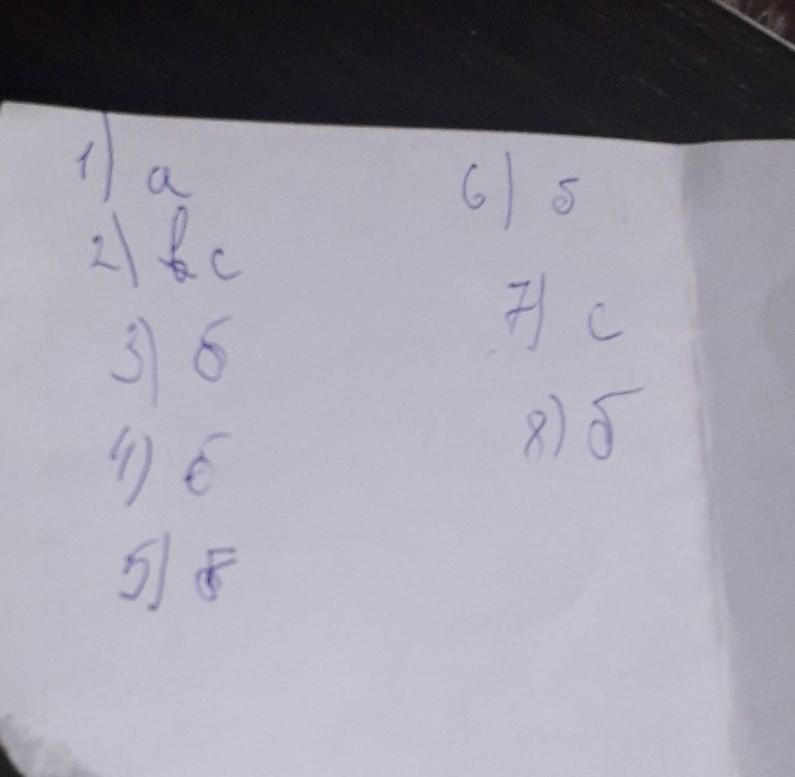 1) а
2) с
3) б
4) б
5) б
6) б
7) с
8) б